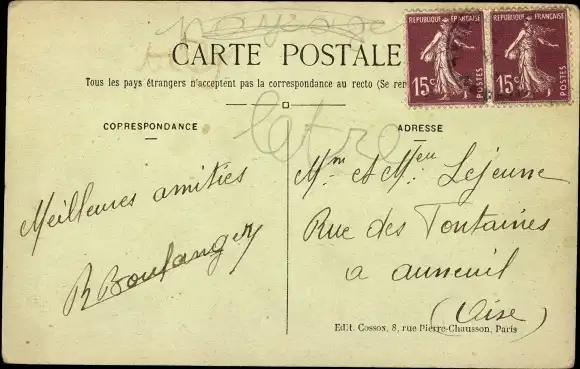 paysage
CARTE POSTALE
REPUBLIQUE FRANÇAISE
15c
POSTES
REPUBLIQUE FRANÇAISE
15c
POSTES
Tous les pays étrangers n'acceptent pas la correspondance au recto (Se ren
CORRESPONDANCE
Meilleures amitiés
R Boulanger
ADRESSE
Mm et Meu Lejeune
Rue des Fontaines
a auneuil
(Oise)
Edit. Cosson, 8, rue Pierre-Chausson, Paris